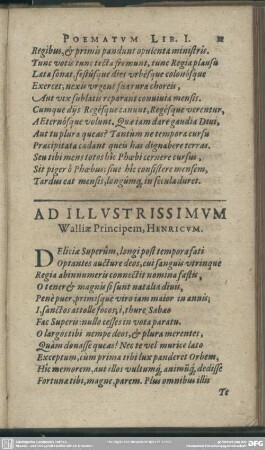 POEMATVM LIB. I.
Regibus, & primis pandunt opulenta ministris.
Tunc votis tunc tecta fremunt, tunc Regia plausu
Lata sonat, festúsque dies vrbésque colonósque
Exercet, nexæ vrgent suarura choreis,
Aut vix sublatis reparant conuiuia mensis.
Cumque dijs Regésque canunt, Regésque verentur,
Æternósque volunt. Qua iam dare gaudia Diui,
Aut tu plura queas? Tantùm ne tempora cursu
Præcipitata cadant queú has dignabere terras.
Seu tibi mens totos hîc Phœbi cernere cursus,
Sit piger ô Phœbus: siue hîc consistere mensem,
Tardus eat mensis, longúmq, in sæcula duret.
AD ILLVSTRISSIMVM
Walliæ Principem, HENRICVM.
DElicia Superûm, longi post tempora fati
Optantes aucture deos, cui sanguis vtrinque
Regia abinnumeris connectit nomina fastis,
O tener & magnis si sunt natalia diuis,
Penè puer, primísque viro iam maior in annis;
I. sanctos attolle focos; i, thure Sabæo
Fac Superis: nullo cesses in vota paratu.
O largos tibi nempe deos, & plura merentes,
Quàm donasse queas! Nec te vel murice lato
Exceptum, cùm prima tibi lux panderet Orbem,
Hic memorem, aut ollos vultúmq, animúq, dedisse
Fortuna tibi, magne, parem. Plus omnibus illis
Te